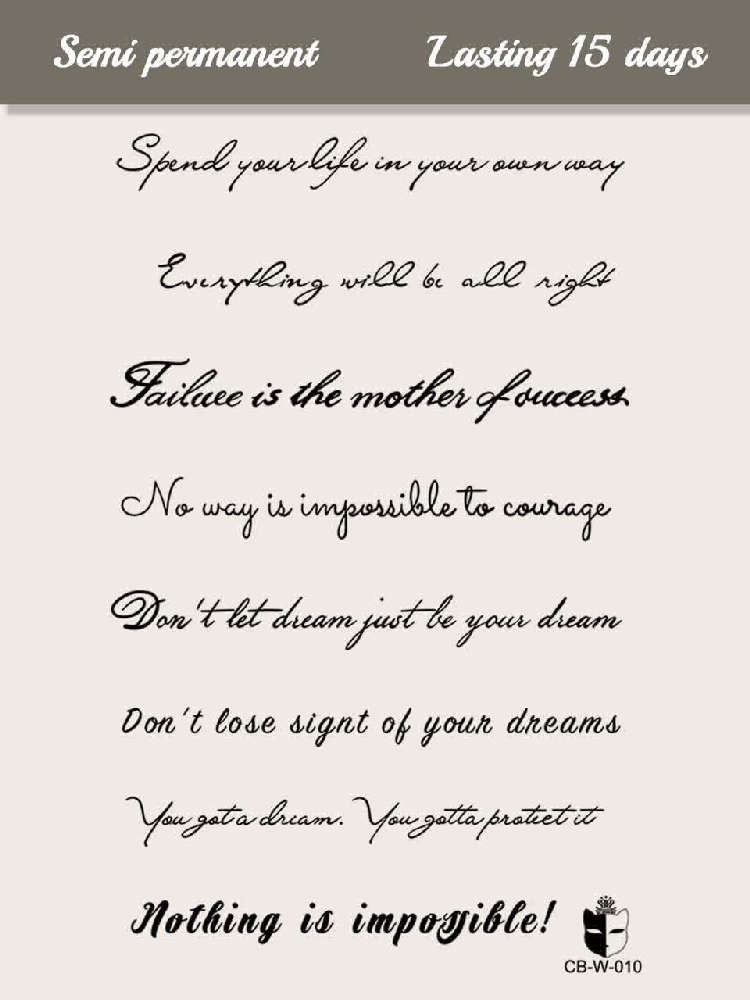 Semi permanent Lasting 15 days
Spend your life in your own way
Everything will be all right
Failuee is the mother of success
No way is impossible to courage
Don't let dream just be your dream
Don't lose signt of your dreams
You got a dream. You gotta protiet it
Nothing is impossible!
CB-W-010